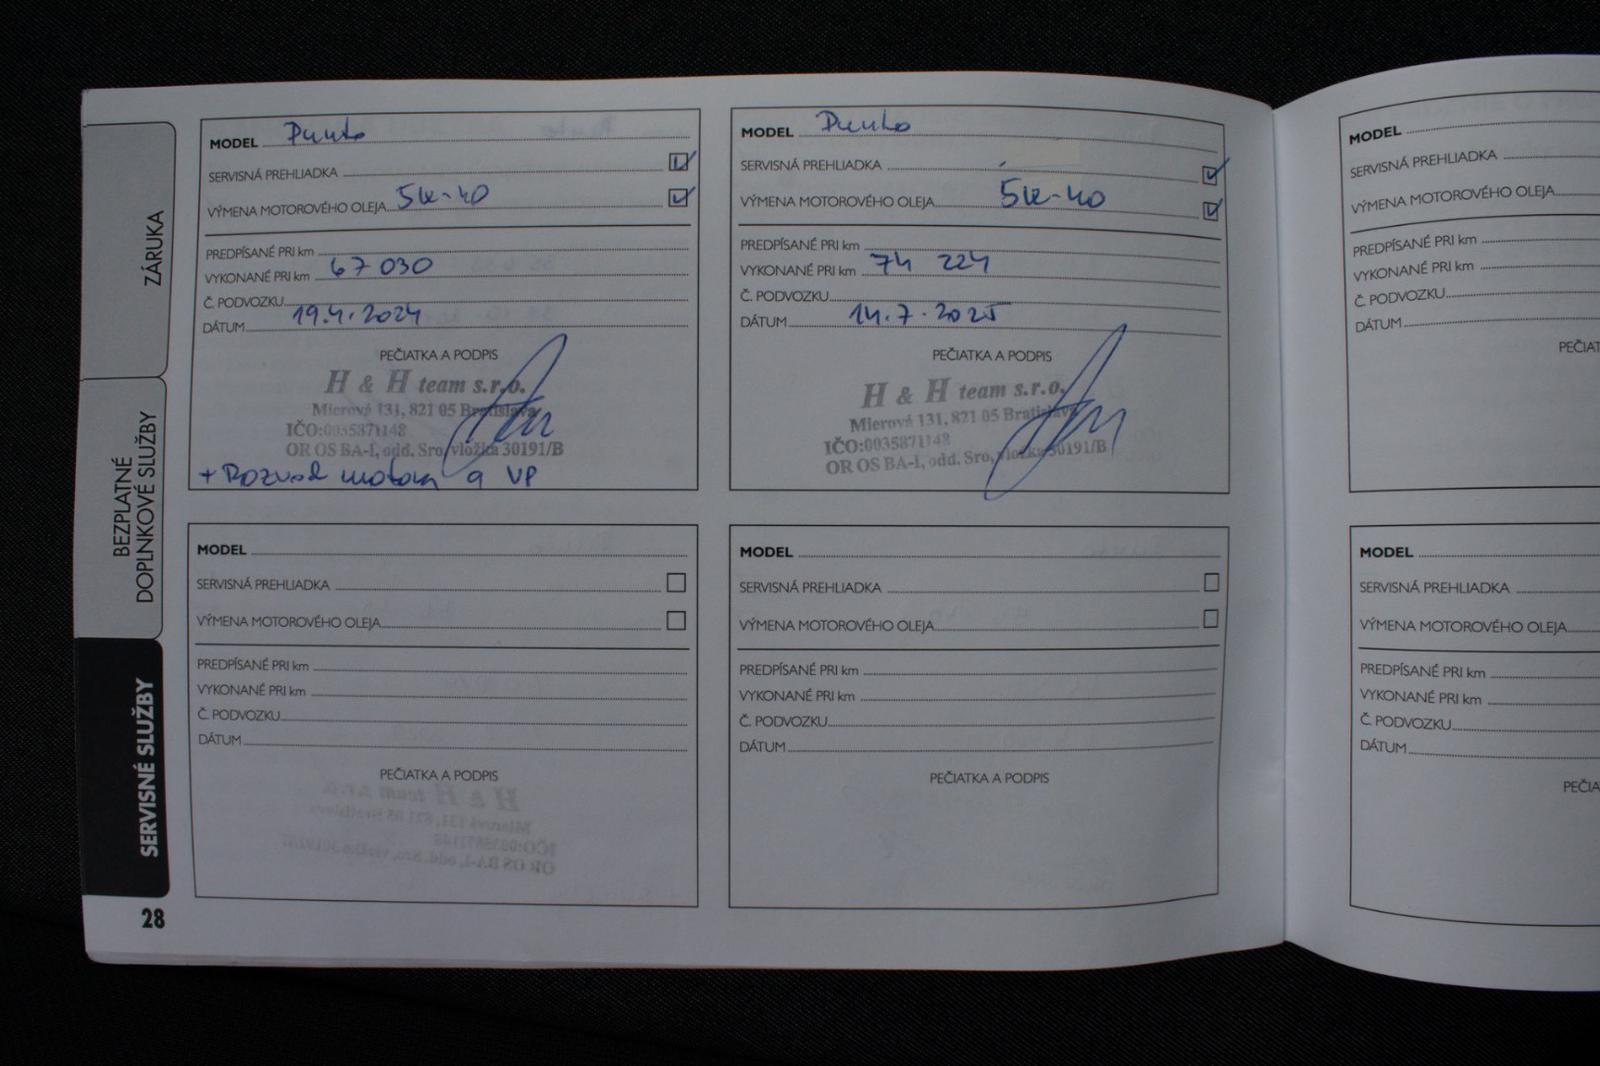 ZÁRUKA
BEZPLATNÉ
DOPLNKOVÉ SLUŽBY
SERVISNÉ SLUŽBY
28
MODEL Punto
SERVISNÁ PREHLIADKA
VÝMENA MOTOROVÉHO OLEJA 5W-40
PREDPÍSANÉ PRI km
VYKONANÉ PRI km 67 030
Č. PODVOZKU
DÁTUM 19.4.2024
PEČIATKA A PODPIS
H & H team s.r.o.
Mierová 131, 821 05 Bratislava
IČO:0035871148
OR OS BA-I, odd. Sro, vložka 30191/B
+ Rozvod motora a VP
MODEL Punto
SERVISNÁ PREHLIADKA
VÝMENA MOTOROVÉHO OLEJA 5W-40
PREDPÍSANÉ PRI km
VYKONANÉ PRI km 74 224
Č. PODVOZKU
DÁTUM 14.7.2025
PEČIATKA A PODPIS
H & H team s.r.o.
Mierová 131, 821 05 Bratislava
IČO:0035871148
OR OS BA-I, odd. Sro, vložka 30191/B
MODEL
SERVISNÁ PREHLIADKA
VÝMENA MOTOROVÉHO OLEJA
PREDPÍSANÉ PRI km
VYKONANÉ PRI km
Č. PODVOZKU
DÁTUM
PEČIAT
MODEL
SERVISNÁ PREHLIADKA
VÝMENA MOTOROVÉHO OLEJA
PREDPÍSANÉ PRI km
VYKONANÉ PRI km
Č. PODVOZKU
DÁTUM
PEČIATKA A PODPIS
MODEL
SERVISNÁ PREHLIADKA
VÝMENA MOTOROVÉHO OLEJA
PREDPÍSANÉ PRI km
VYKONANÉ PRI km
Č. PODVOZKU
DÁTUM
PEČIATKA A PODPIS
MODEL
SERVISNÁ PREHLIADKA
VÝMENA MOTOROVÉHO OLEJA
PREDPÍSANÉ PRI km
VYKONANÉ PRI km
Č. PODVOZKU
DÁTUM
PEČIA